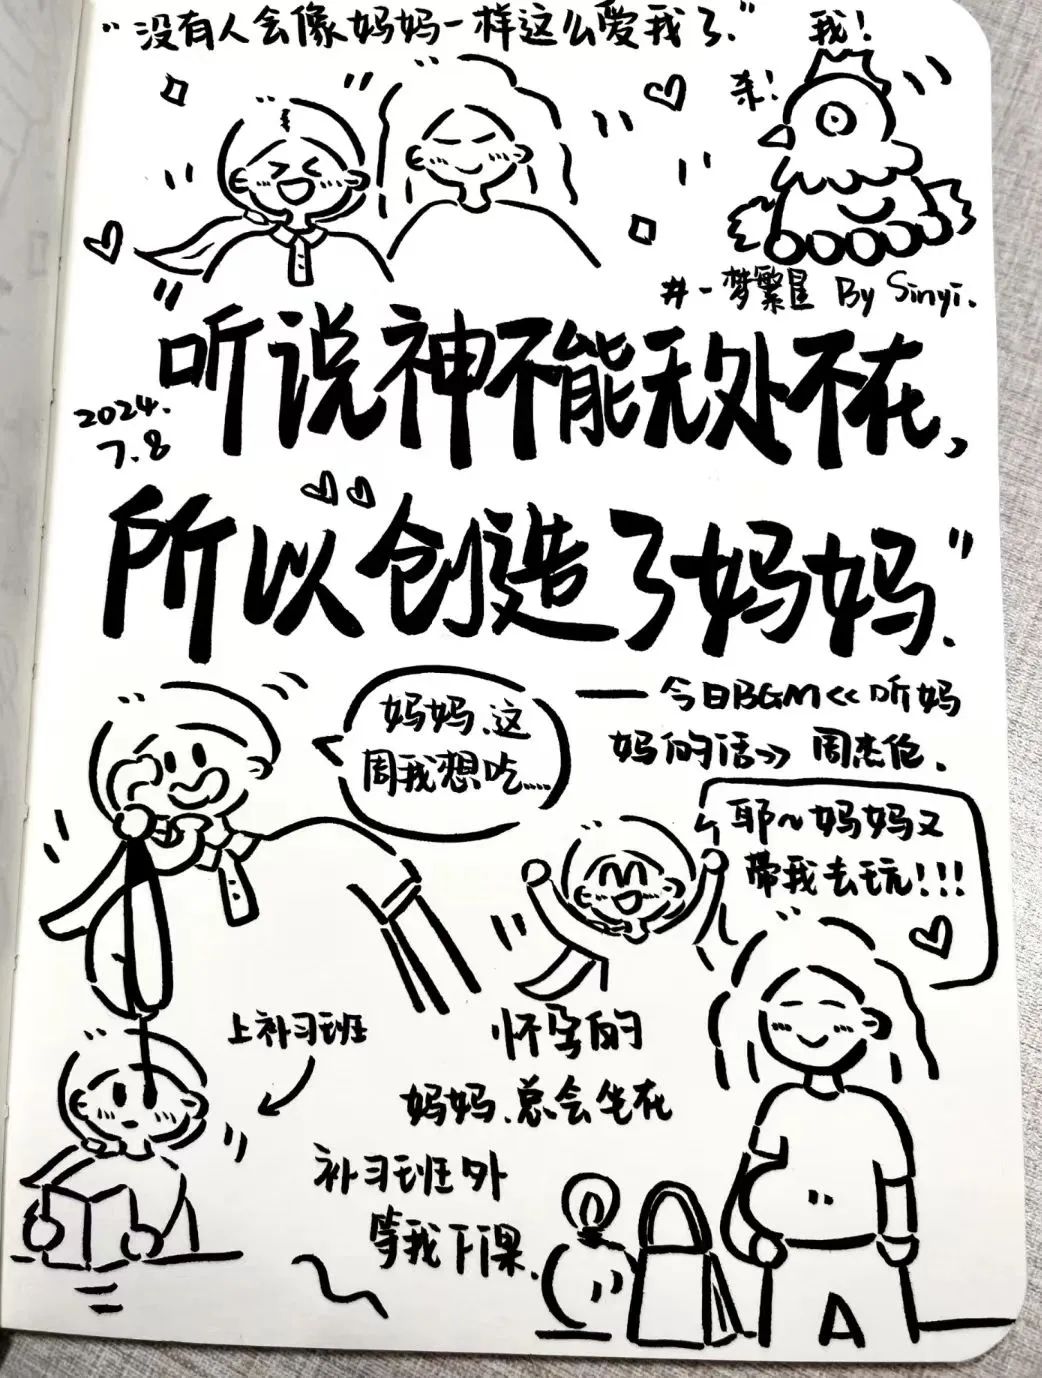 “没有人会像妈妈一样这么爱我了.”
我!
杀!
#一梦繁星 By Sinyi.
2024.
7.8
“听说神不能无处不在,
所以“创造了妈妈.”
——今日BGM<<听妈
妈的话>> 周杰伦.
妈妈、这
周我想吃……
耶~妈妈又
带我去玩!!!
上补习班
怀孕的
妈妈、总会坐在
补习班外
等我下课.